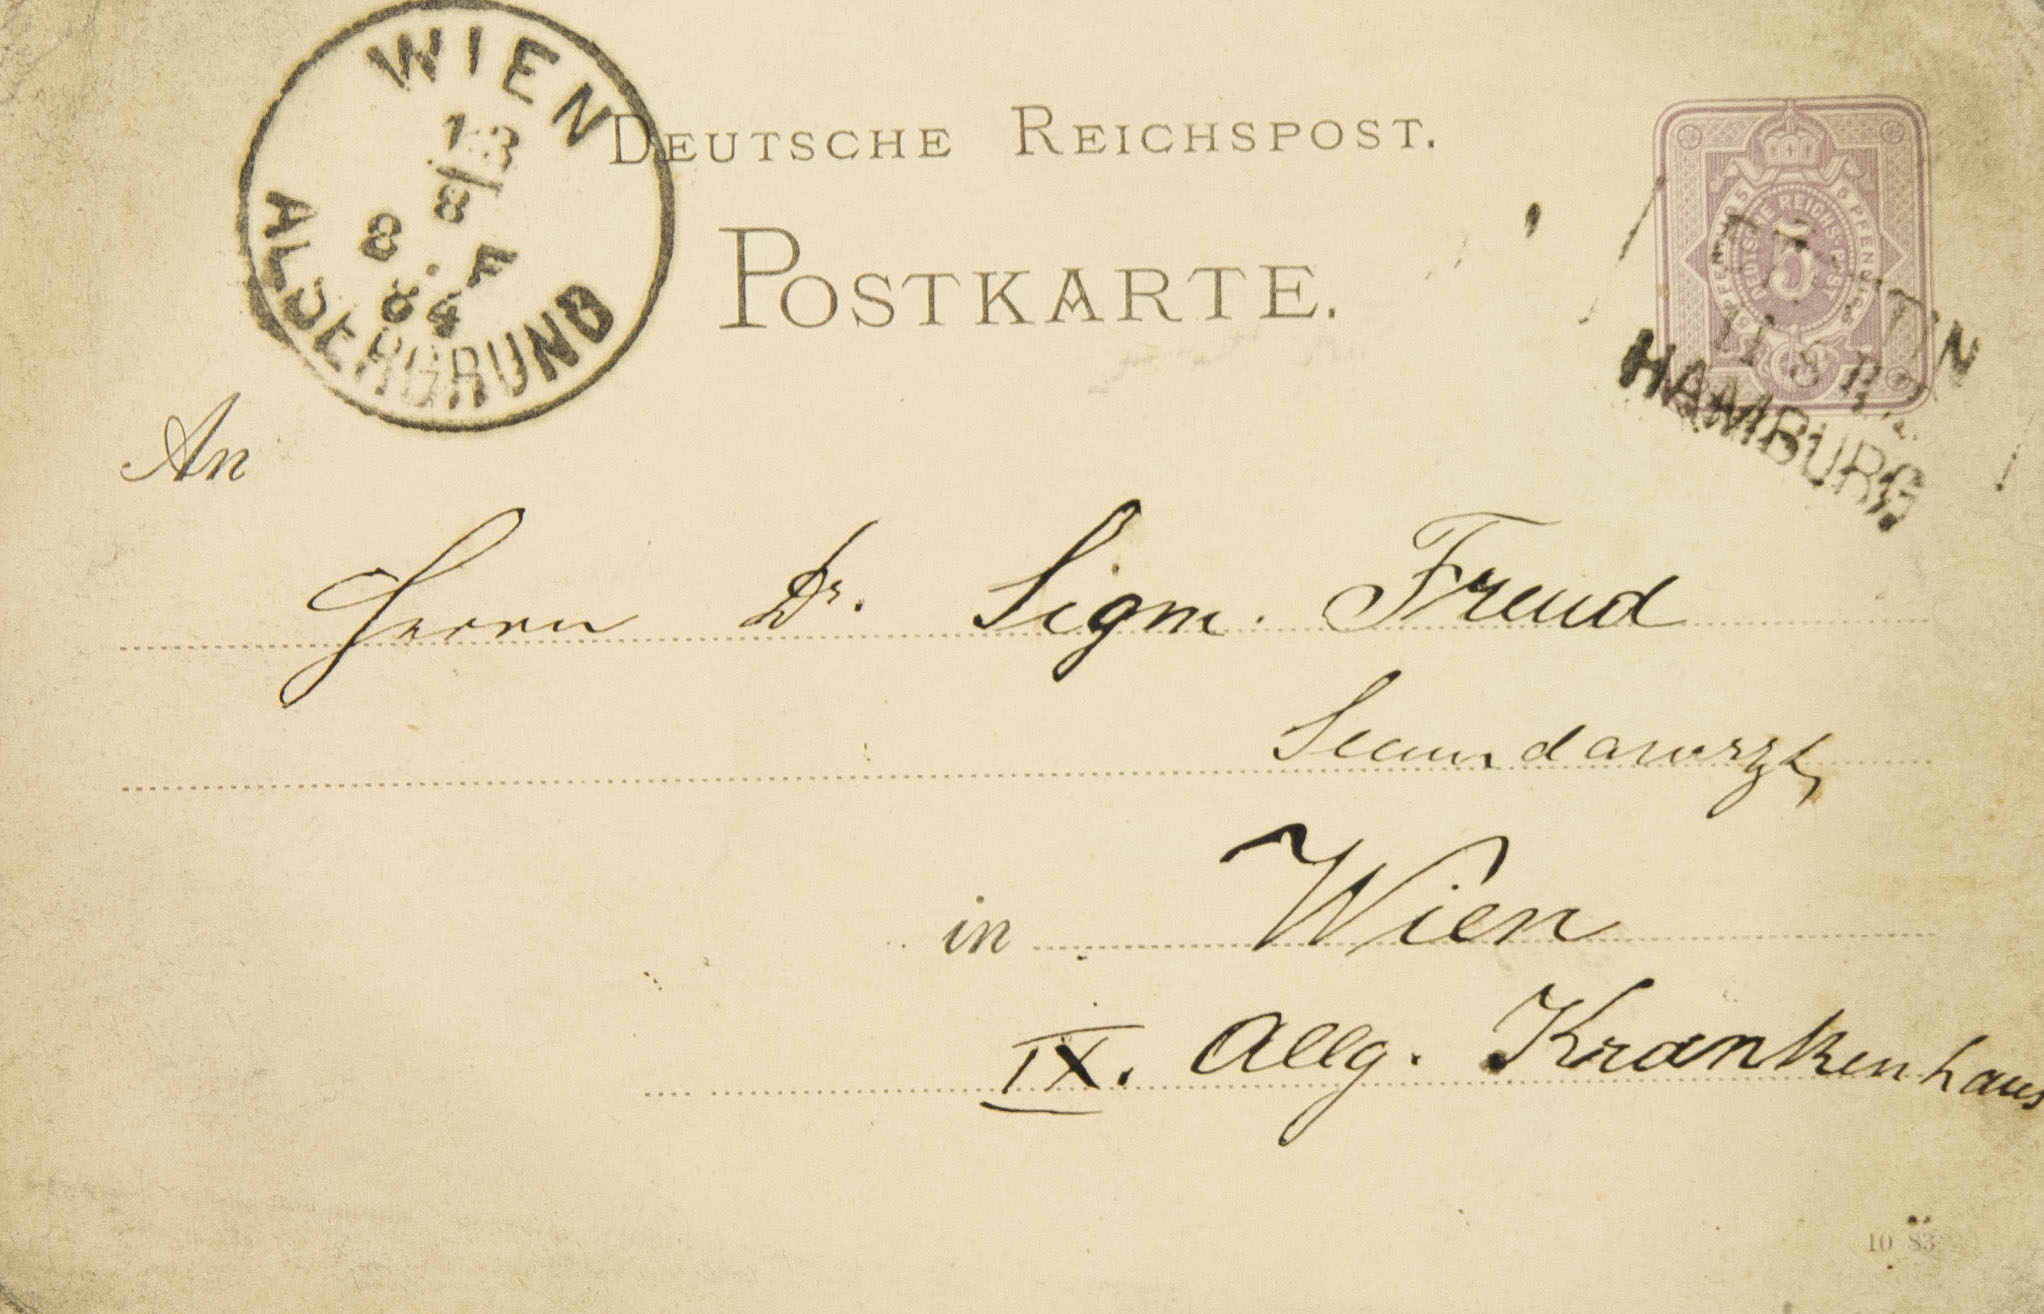 WIEN
13/8
8 F
84
ALSERGRUND
DEUTSCHE REICHSPOST.
POSTKARTE.
DEUTSCHE REICHS-POST
5 PFENNIG 5
5
HAMBURG
An
Herrn Dr. Sigm. Freud
Secundararzt
in Wien
IX. Allg. Krankenhaus
10 83